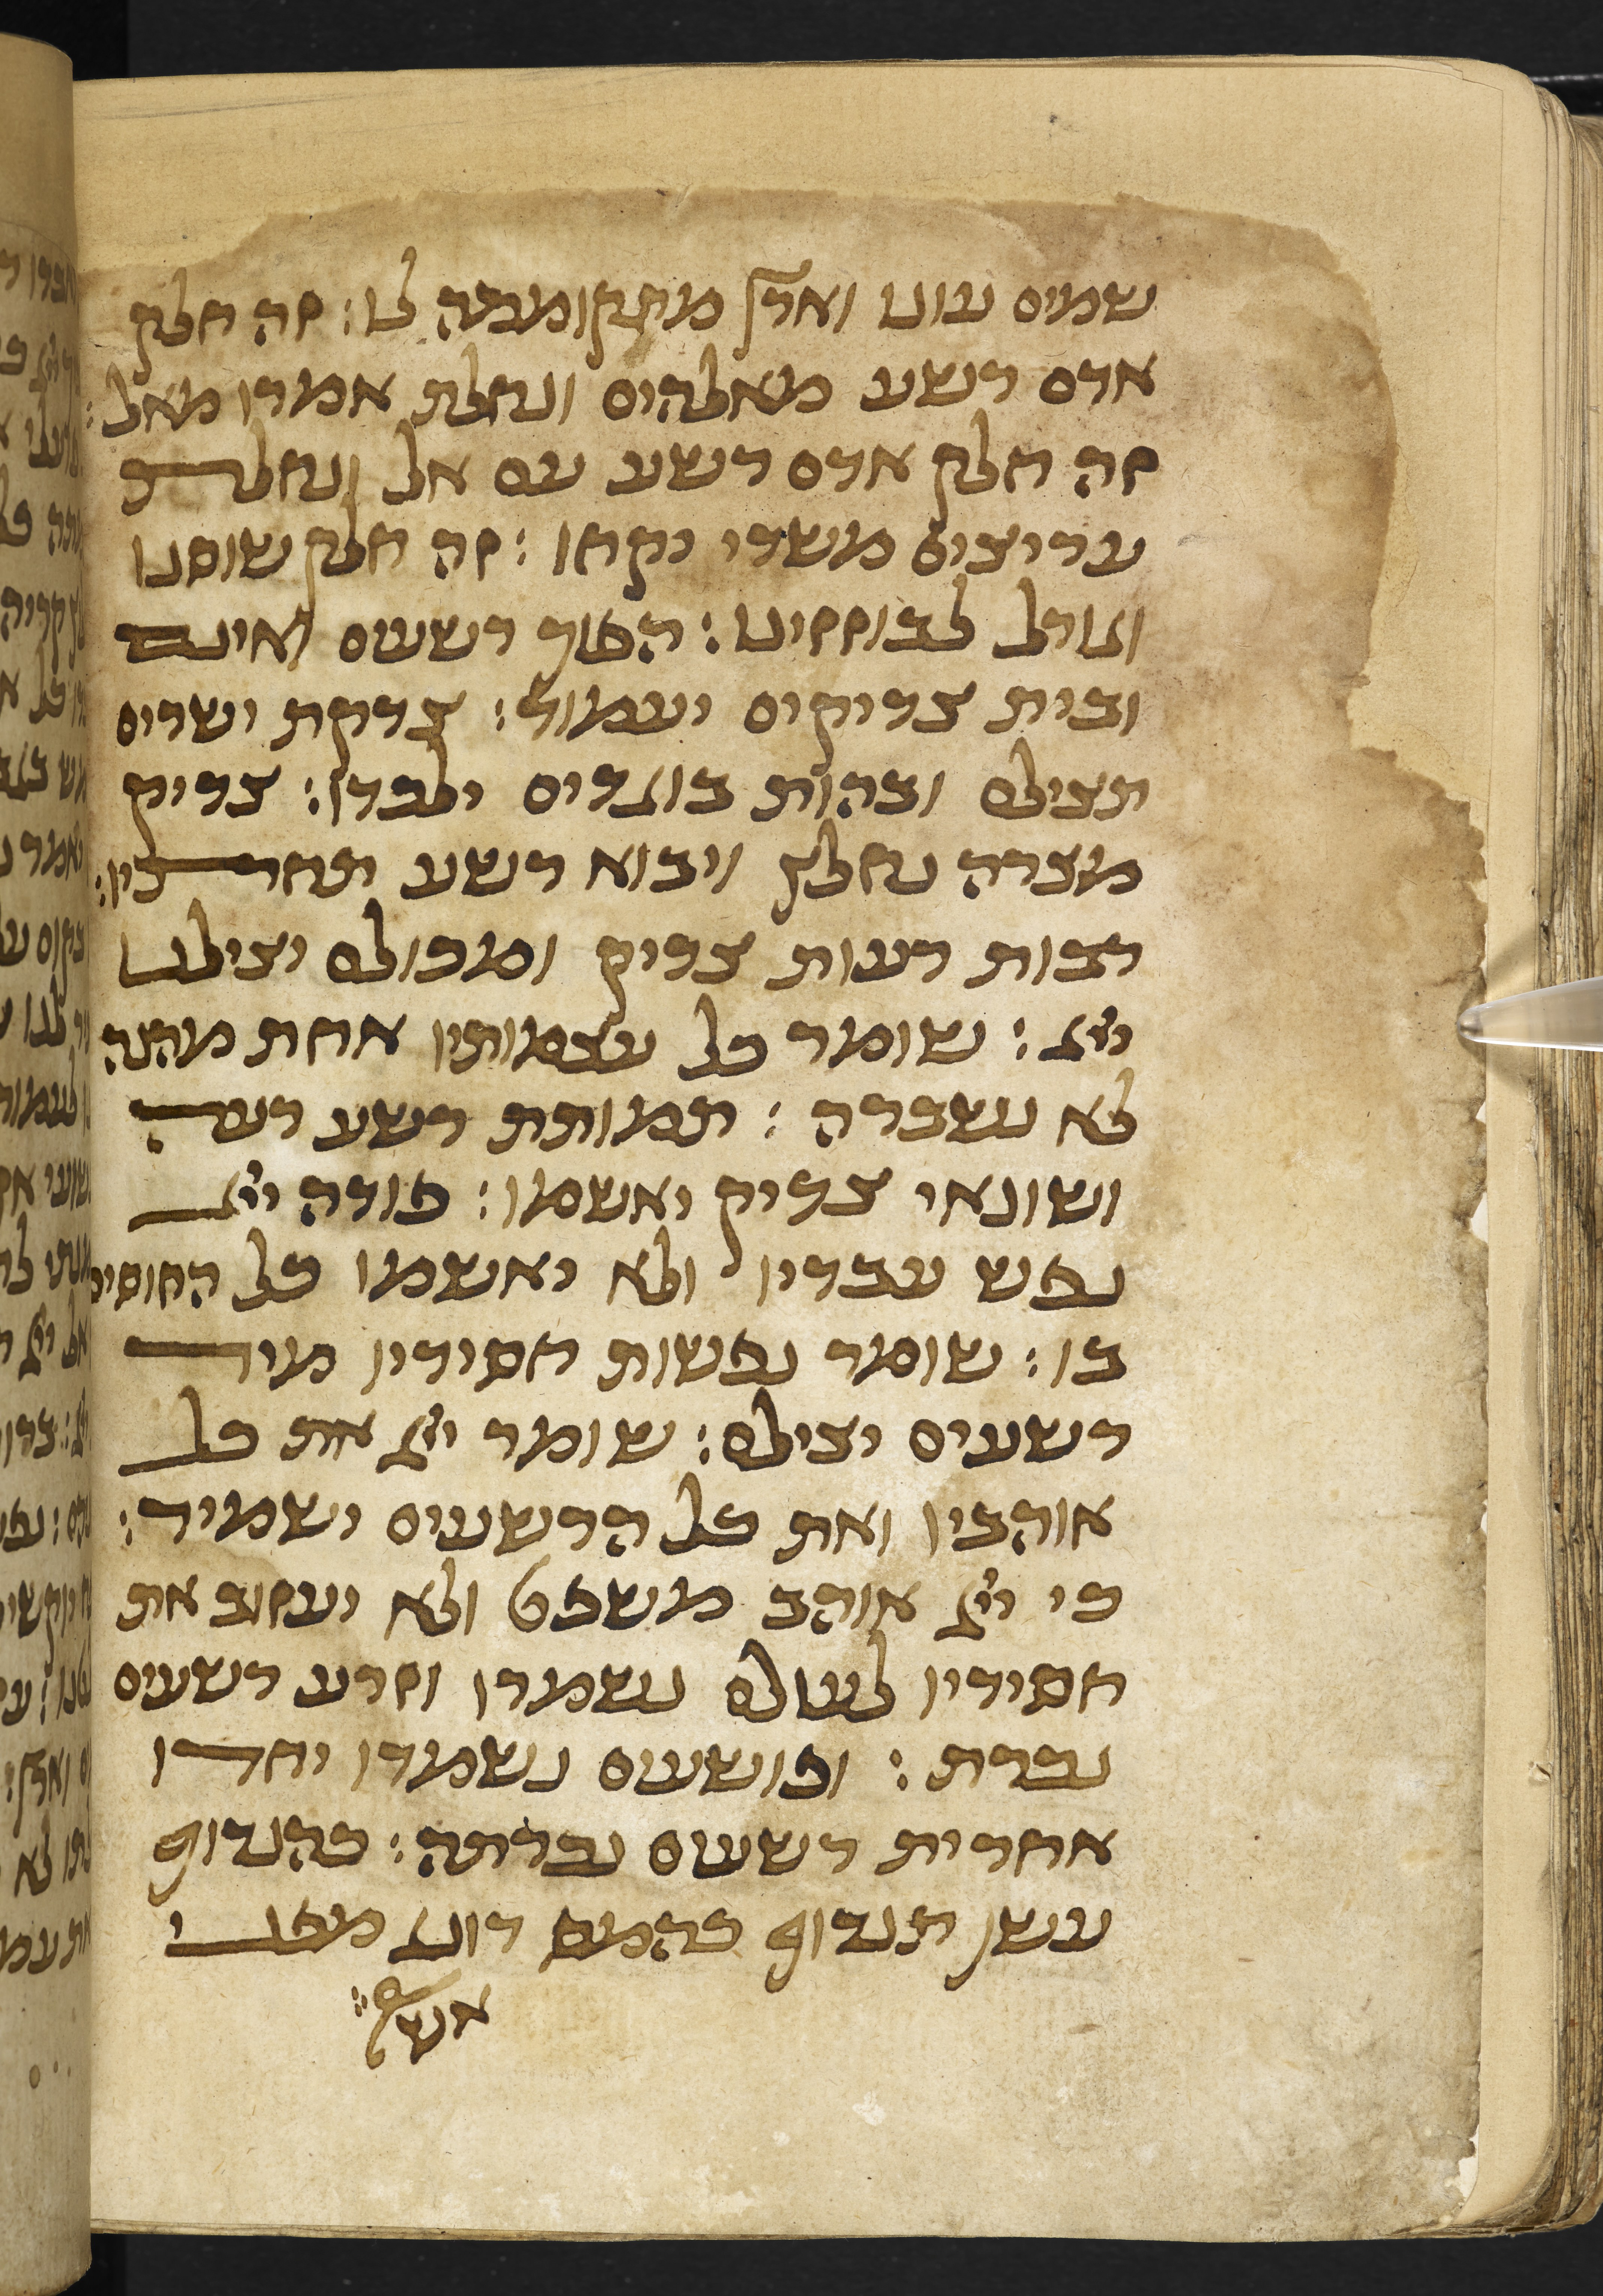 שמים עונו וארץ מתקוממה לו: זה חלק
אדם רשע מאלהים ונחלת אמרו מאל:
זה חלק אדם רשע עם אל ונחלת
עריצים משדי יקחו: זה חלק שוסנו
וגורל לבוזזינו: הפוך רשעים ואינם
ובית צדיקים יעמוד: צדקת ישרים
תצילם ובהות בוגדים ילכדו: צדיק
מצרה נחלץ ויבוא רשע תחתיו:
רבות רעות צדיק ומכולם יצילנו
ייי: שומר כל עצמותיו אחת מהנה
לא נשברה: תמותת רשע רעה
ושונאי צדיק יאשמו: פודה ייי
נפש עבדיו ולא יאשמו כל החוסים
בו: שומר נפשות חסידיו מיד
רשעים יצילם: שומר ייי את כל
אוהביו ואת כל הרשעים ישמיד:
כי ייי אוהב משפט ולא יעזוב את
חסידיו לעולם נשמרו וזרע רשעים
נכרת: ופושעים נשמדו יחדו
אחרית רשעים נכרתה: כהנדוף
עשן תנדוף כהמס דונג מפני
אש